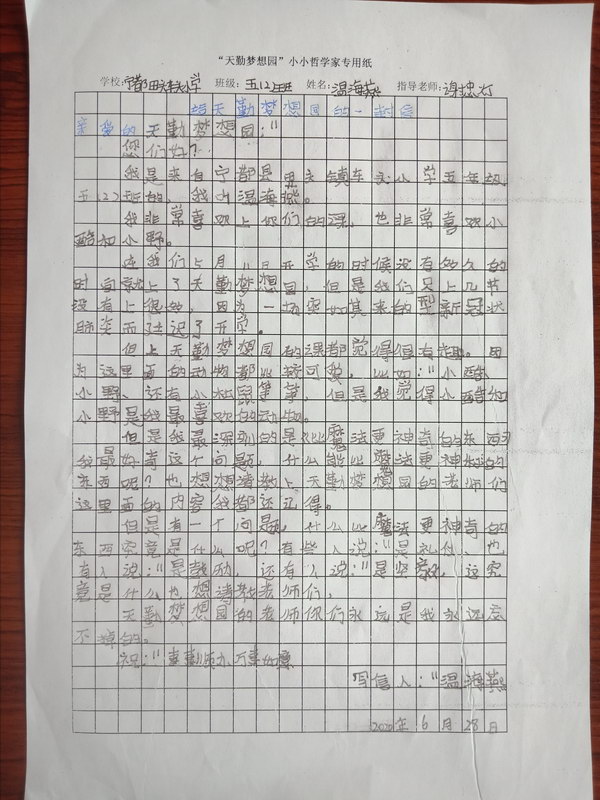 “天勤梦想园”小小哲学家专用纸
学校:宁都田头镇小学 班级:五(2)班 姓名:温海燕 指导老师:
给天勤梦想园的一封信
亲爱的天勤梦想园:"
您们好?
我是来自宁都县田头镇车头小学五年级
五(2)班的 我叫温海燕。
我非常喜欢上你们的课,也非常喜欢小
酷和小野。
在我们上月 开学的时候没有多久的
时间就上了天勤梦想园,但是我们只上几节
没有上很多,因为一场突如其来的型新冠状
肺炎而延迟了开学。
但上天勤梦想园的课都觉得很有趣。因
为这里面的动物都比较可爱,比如:"小酷
小野、还有小松鼠等等,但是我觉得小酷和
小野是我最喜欢的动物。
但是我最深刻的是《比魔法更神奇的东西》
我最好奇这个问题,什么能比魔法更神秘的
东西呢?也想想请教上天勤梦想园的老师们
这里面的内容我都还记得。
但是有一个问题,什么比魔法更神奇的
东西究竟是什么呢?有些人说:"是礼付、也
有人说:"是鼓励,还有人说:"是坚 ,这究
竟是什么也想请教老师们,
天勤梦想园的老师你们永远是我永远忘
不掉的。
祝:" 万事如意
写信人:"温海燕
2020年6月28日